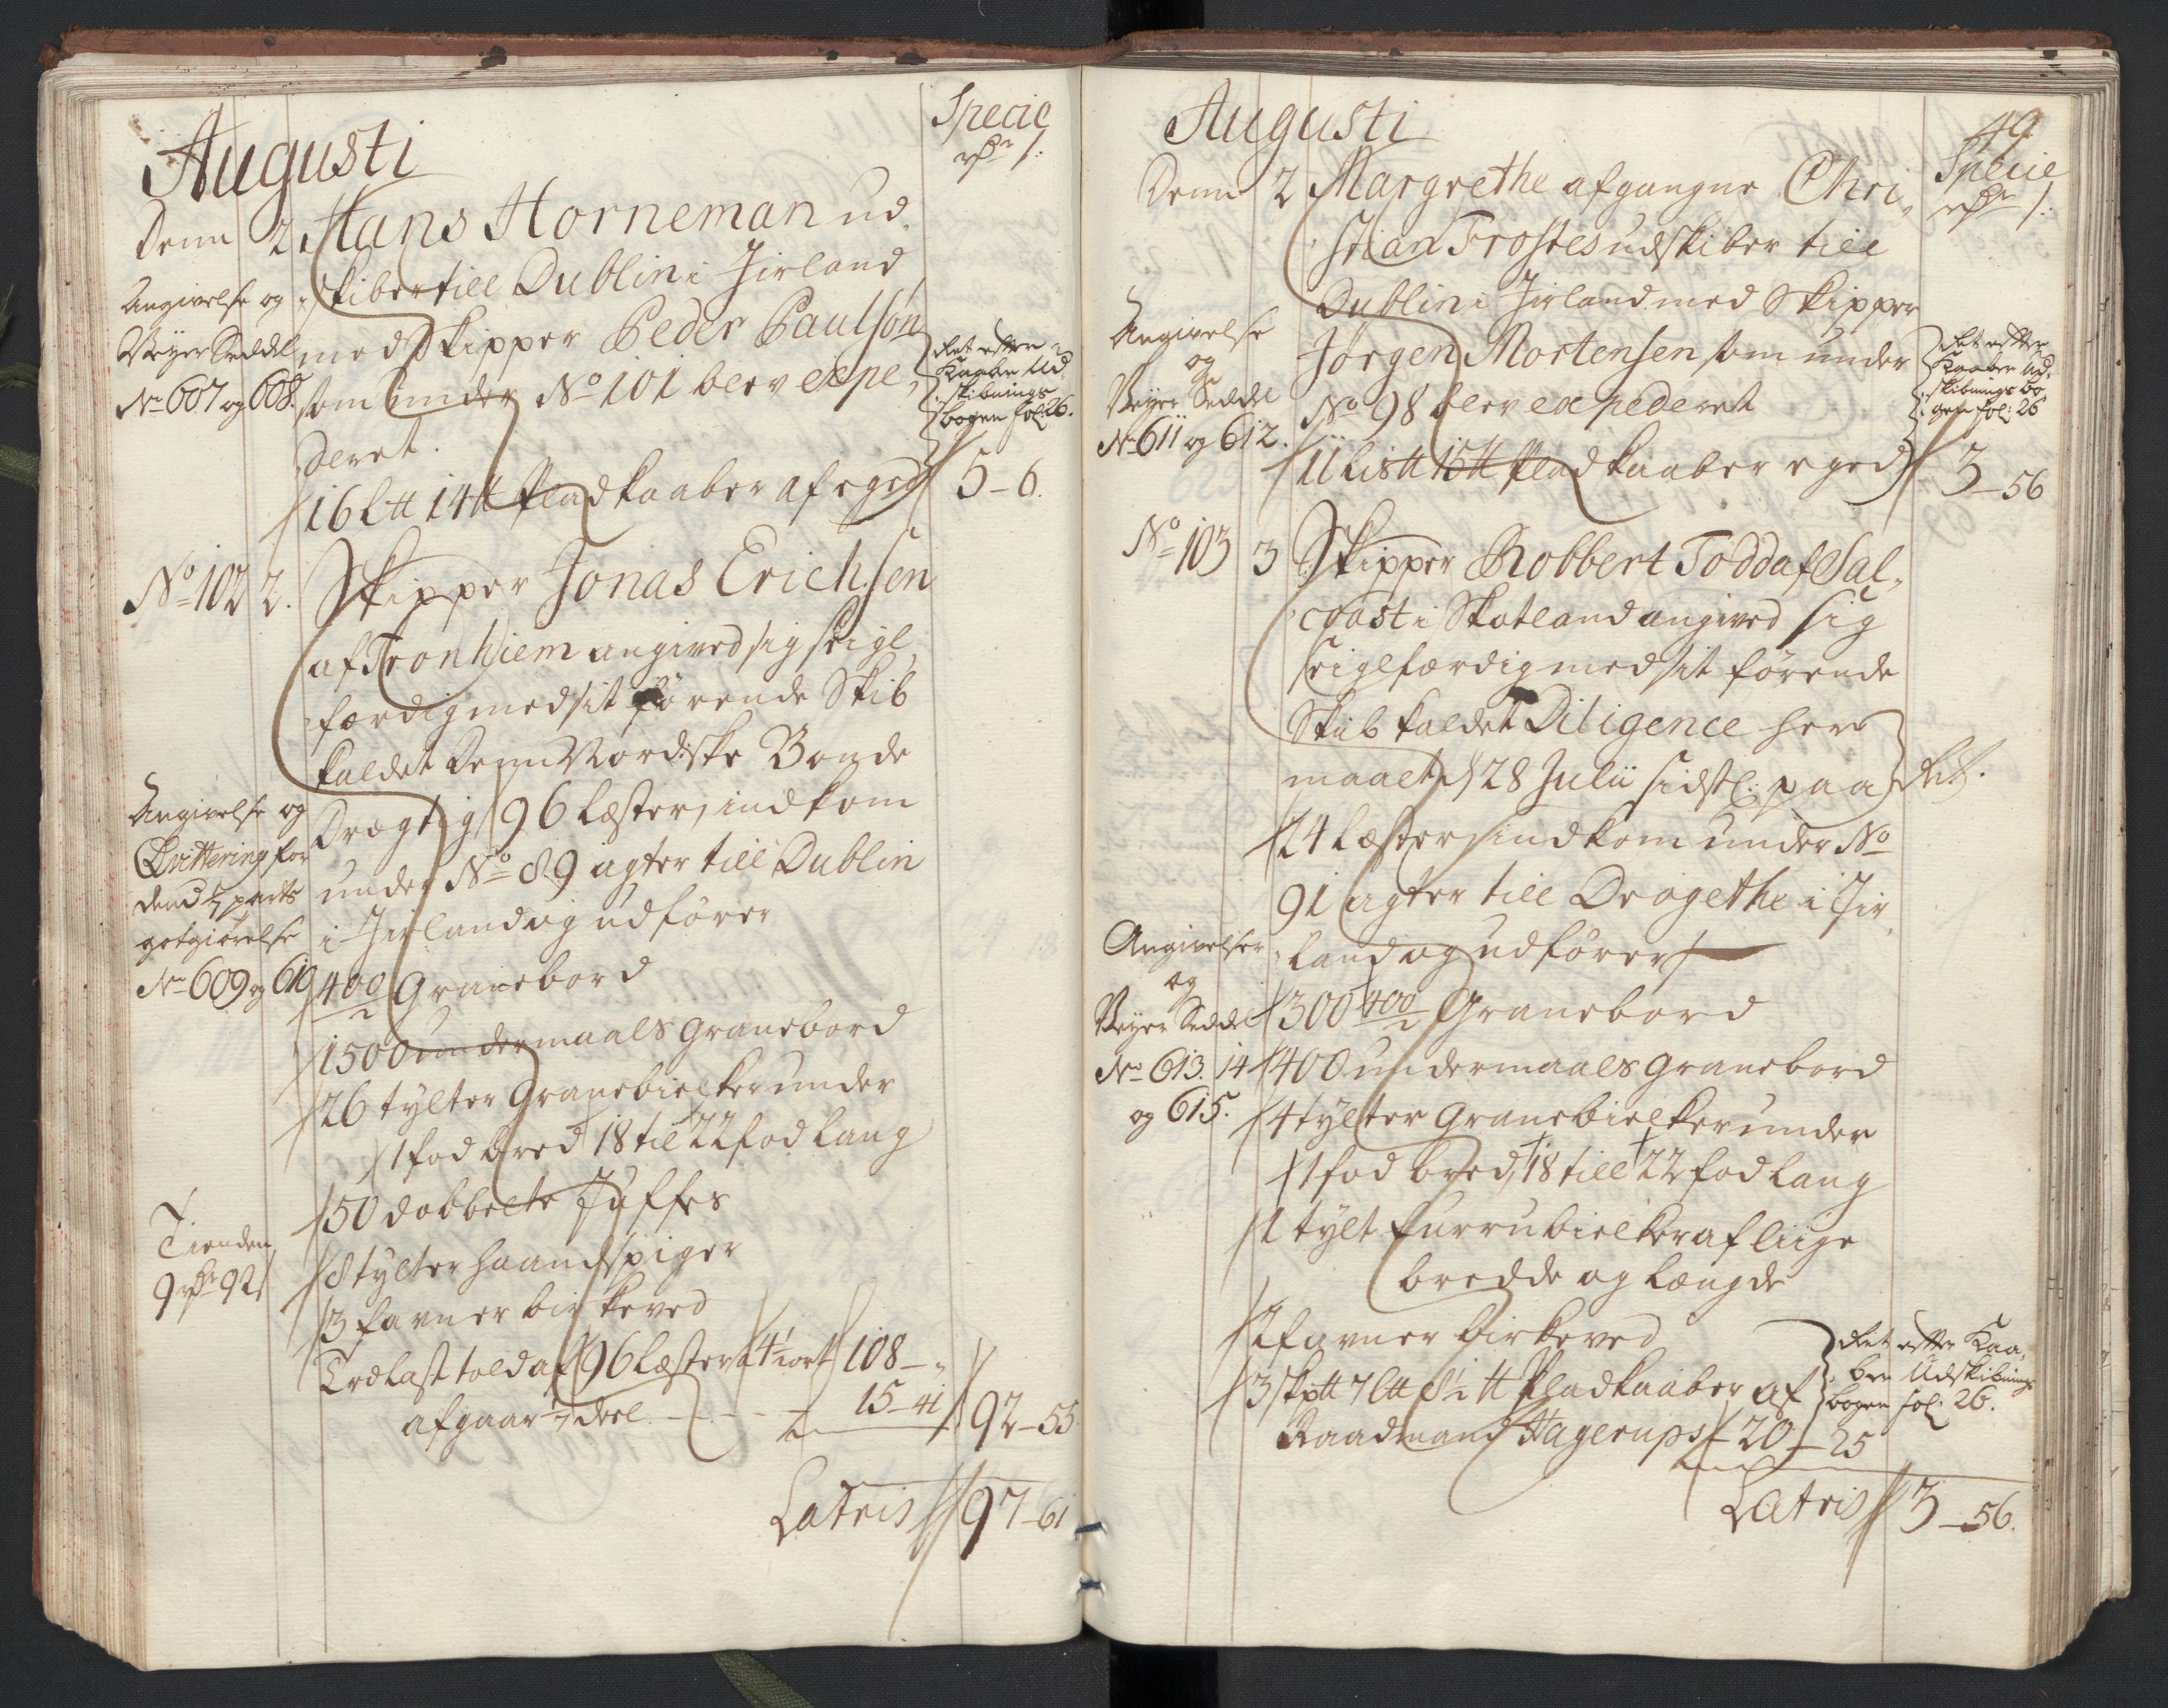 Augusti
Specie
rdr s:
Denn 2 Hans Horneman ud-
skiber till Dublin i Jirland
med Skipper Peder Paulsøn
som under No 101 blev expe-
deret.
Angivelse og
Veyer Seddel
No 607 og 608.
Ret efter
Kaaber Ud-
skibnings
bogen fol: 26.
16 L℔ 14 ℔ Pladkaaber af eged 5 - 6.
No 102 2. Skipper Jonas Erichsen
af Tronhiem angived sig seigl-
færdig med sit førende Skib
kaldet Denn Nordiske Bonde
Drægtig 96 Læster, indkom
under No 89 agter till Dublin
i Jirland og udfører
Angivelse og
Qvittering for
dend 1/7 parts
gotgiørelse
No 609 og 610
400/2 Granebord
1500 undermaals Granebord
26 tylter Granebielker under
1 fod bred 18 til 22 fod Lang
50 dobbelte Juffer
8 tylter haandspiger
3 favner birkeved
Tienden
9 rdr 92 s
Trælast told af 96 Læster a 4 1/2 ort 108 - „
afgaar 1/7 deel 15 - 41 92 - 55.
Latris 97 - 61
49
Augusti
Specie
rdr s:
Denn 2 Margrethe afgangne Chri-
stian Frostes udskiber till
Dublin i Jirland med Skipper
Jørgen Mortensen som under
No 98 blev expederet
Angivelse
og
Veyer Seddel
No 611 og 612.
Ret efter
Kaaber Ud-
skibnings bo-
gen fol: 26
11 Lis℔ 15 ℔ Pladkaaber eged 3 - 56
No 103 3 Skipper Robbert Todd af Sal-
coast i Skotland angived sig
seiglfærdig med sit førende
Skib kaldet Diligence her
maalt d 28 Julii sidstl: paa
Ret.
24 Læster, indkom under No
91 agter till Drogethe i Jir-
land og udfører
Angivelser
og
Veyer Seddel
No 613. 14
og 615.
300 400/2 Granebord
400 undermaals Granebord
4 tylter Granebielker under
1 fod bred, 18 till 22 fod Lang
1 tylt furrubielker af liige
bredde og Længde
2 favner birkeved
3 Skp℔ 7 L℔ 8 1/2 ℔ Pladkaaber af
Raadmand Hagerups 20 - 25
Ret efter Kaa-
ber Udskibnings
bogen fol: 26.
Latris 3 - 56.